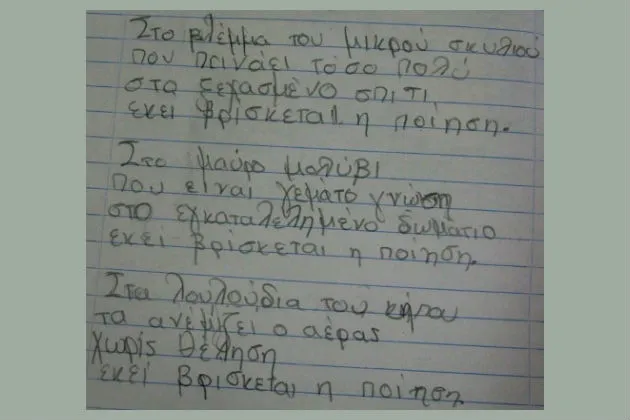 Στο βλέμμα του μικρού σκυλιού
που πεινάει τόσο πολύ
στο ξεχασμένο σπίτι,
εκεί βρίσκεται η ποίηση.
Στο μαύρο μολύβι
που είναι γεμάτο γνώση
στο εγκαταλελημένο δωμάτιο
εκεί βρίσκεται η ποίηση.
Στα λουλούδια του κήπου
τα ανέμιζει ο αέρας
χωρίς θέληση
εκεί βρίσκεται η ποίηση.